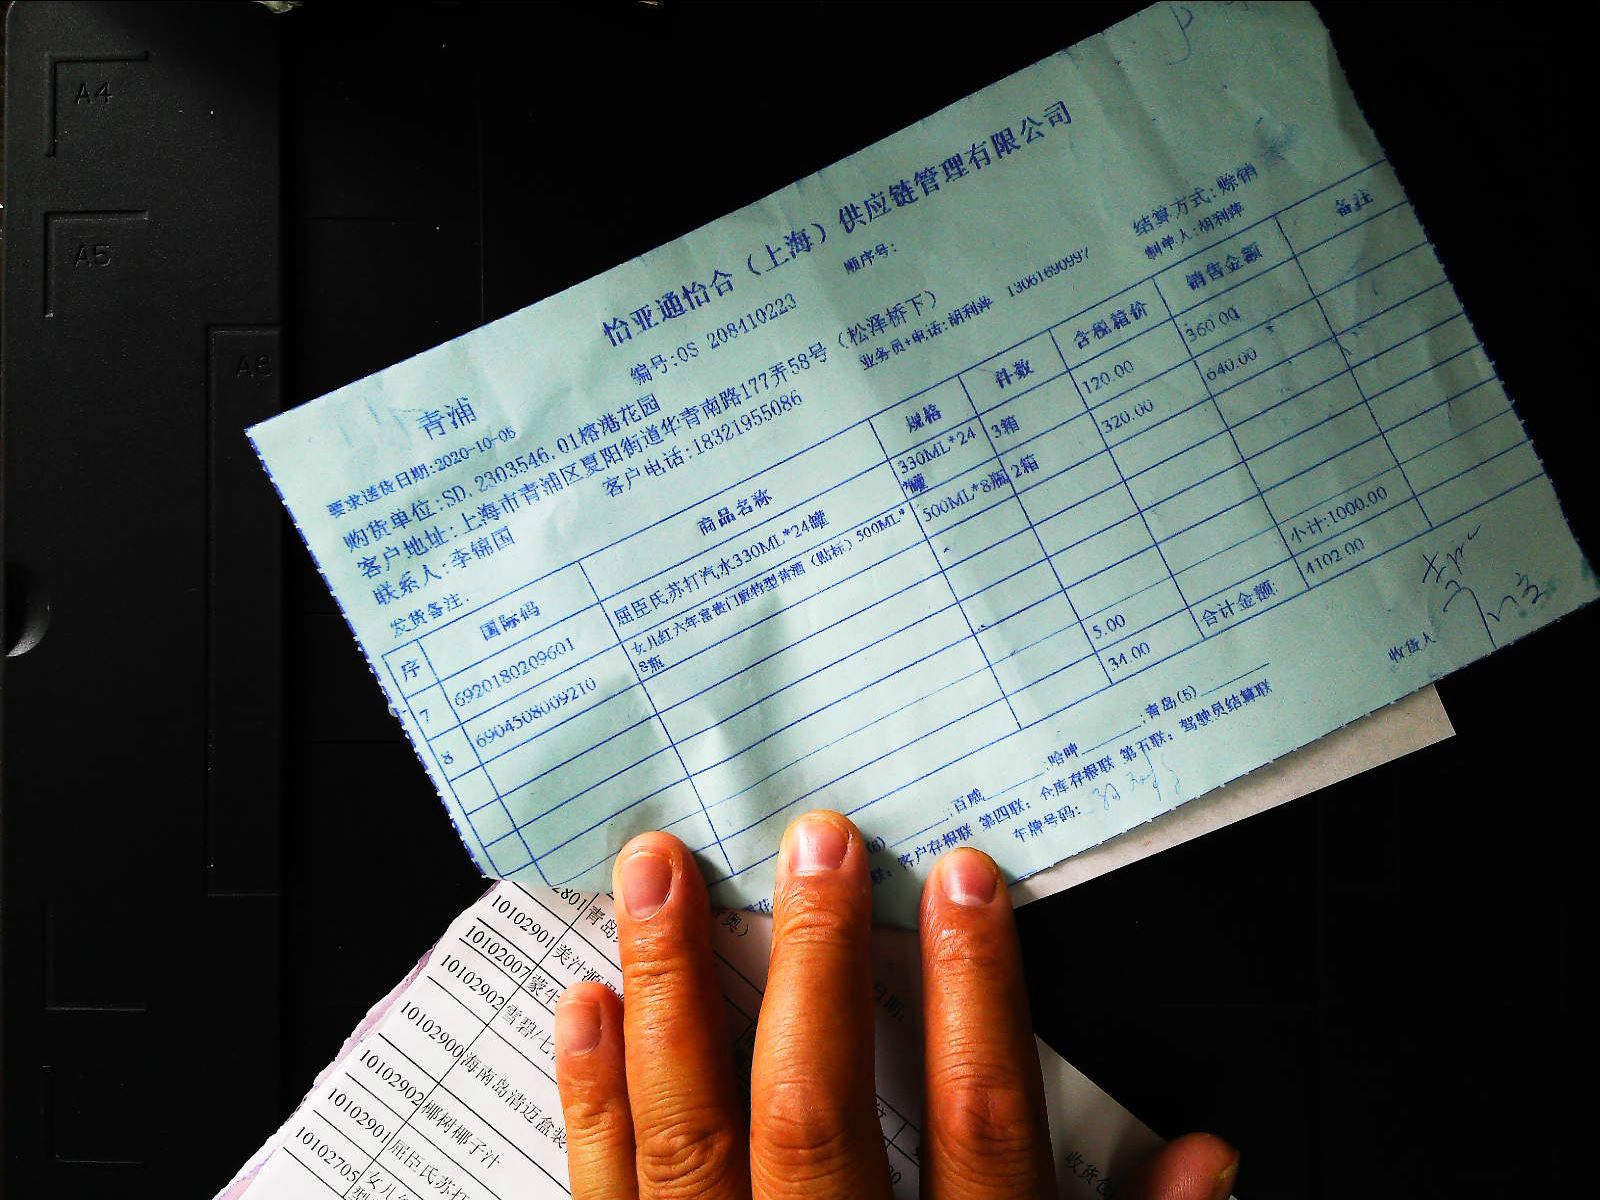 A4
A5
A6
怡亚通怡合（上海）供应链管理有限公司
青浦
编号:OS 208410223
顺序号:
结算方式:赊销
要求送货日期:2020-10-05
业务员+电话:胡利萍 13061690997
制单人:胡利萍
购货单位:SD.2303546.01榕港花园
客户地址:上海市青浦区夏阳街道华青南路177弄58号（松泽桥下）
联系人:李锦国
客户电话:18321955086
发货备注:
序 国际码 商品名称 规格 件数 含税箱价 销售金额 备注
7 6920180209601 屈臣氏苏打汽水330ML*24罐 330ML*24罐 3箱 120.00 360.00
8 6904508009210 女儿红六年富贵门庭特型黄酒（贴标）500ML*8瓶 500ML*8瓶 2箱 320.00 640.00
5.00 小计:1000.00
34.00 合计金额: 4102.00
百威 哈啤 青岛(5)
客户存根联 第四联: 仓库存根联 第五联: 驾驶员结算联
车牌号码:
收货人
2801 青岛 奥）
10102901 美汁源
10102007 蒙牛
10102902 雪碧/七
10102900 海南岛清迈盒装
10102902 椰树椰子汁
10102901 屈臣氏苏打
10102705 女儿
日期:
收货